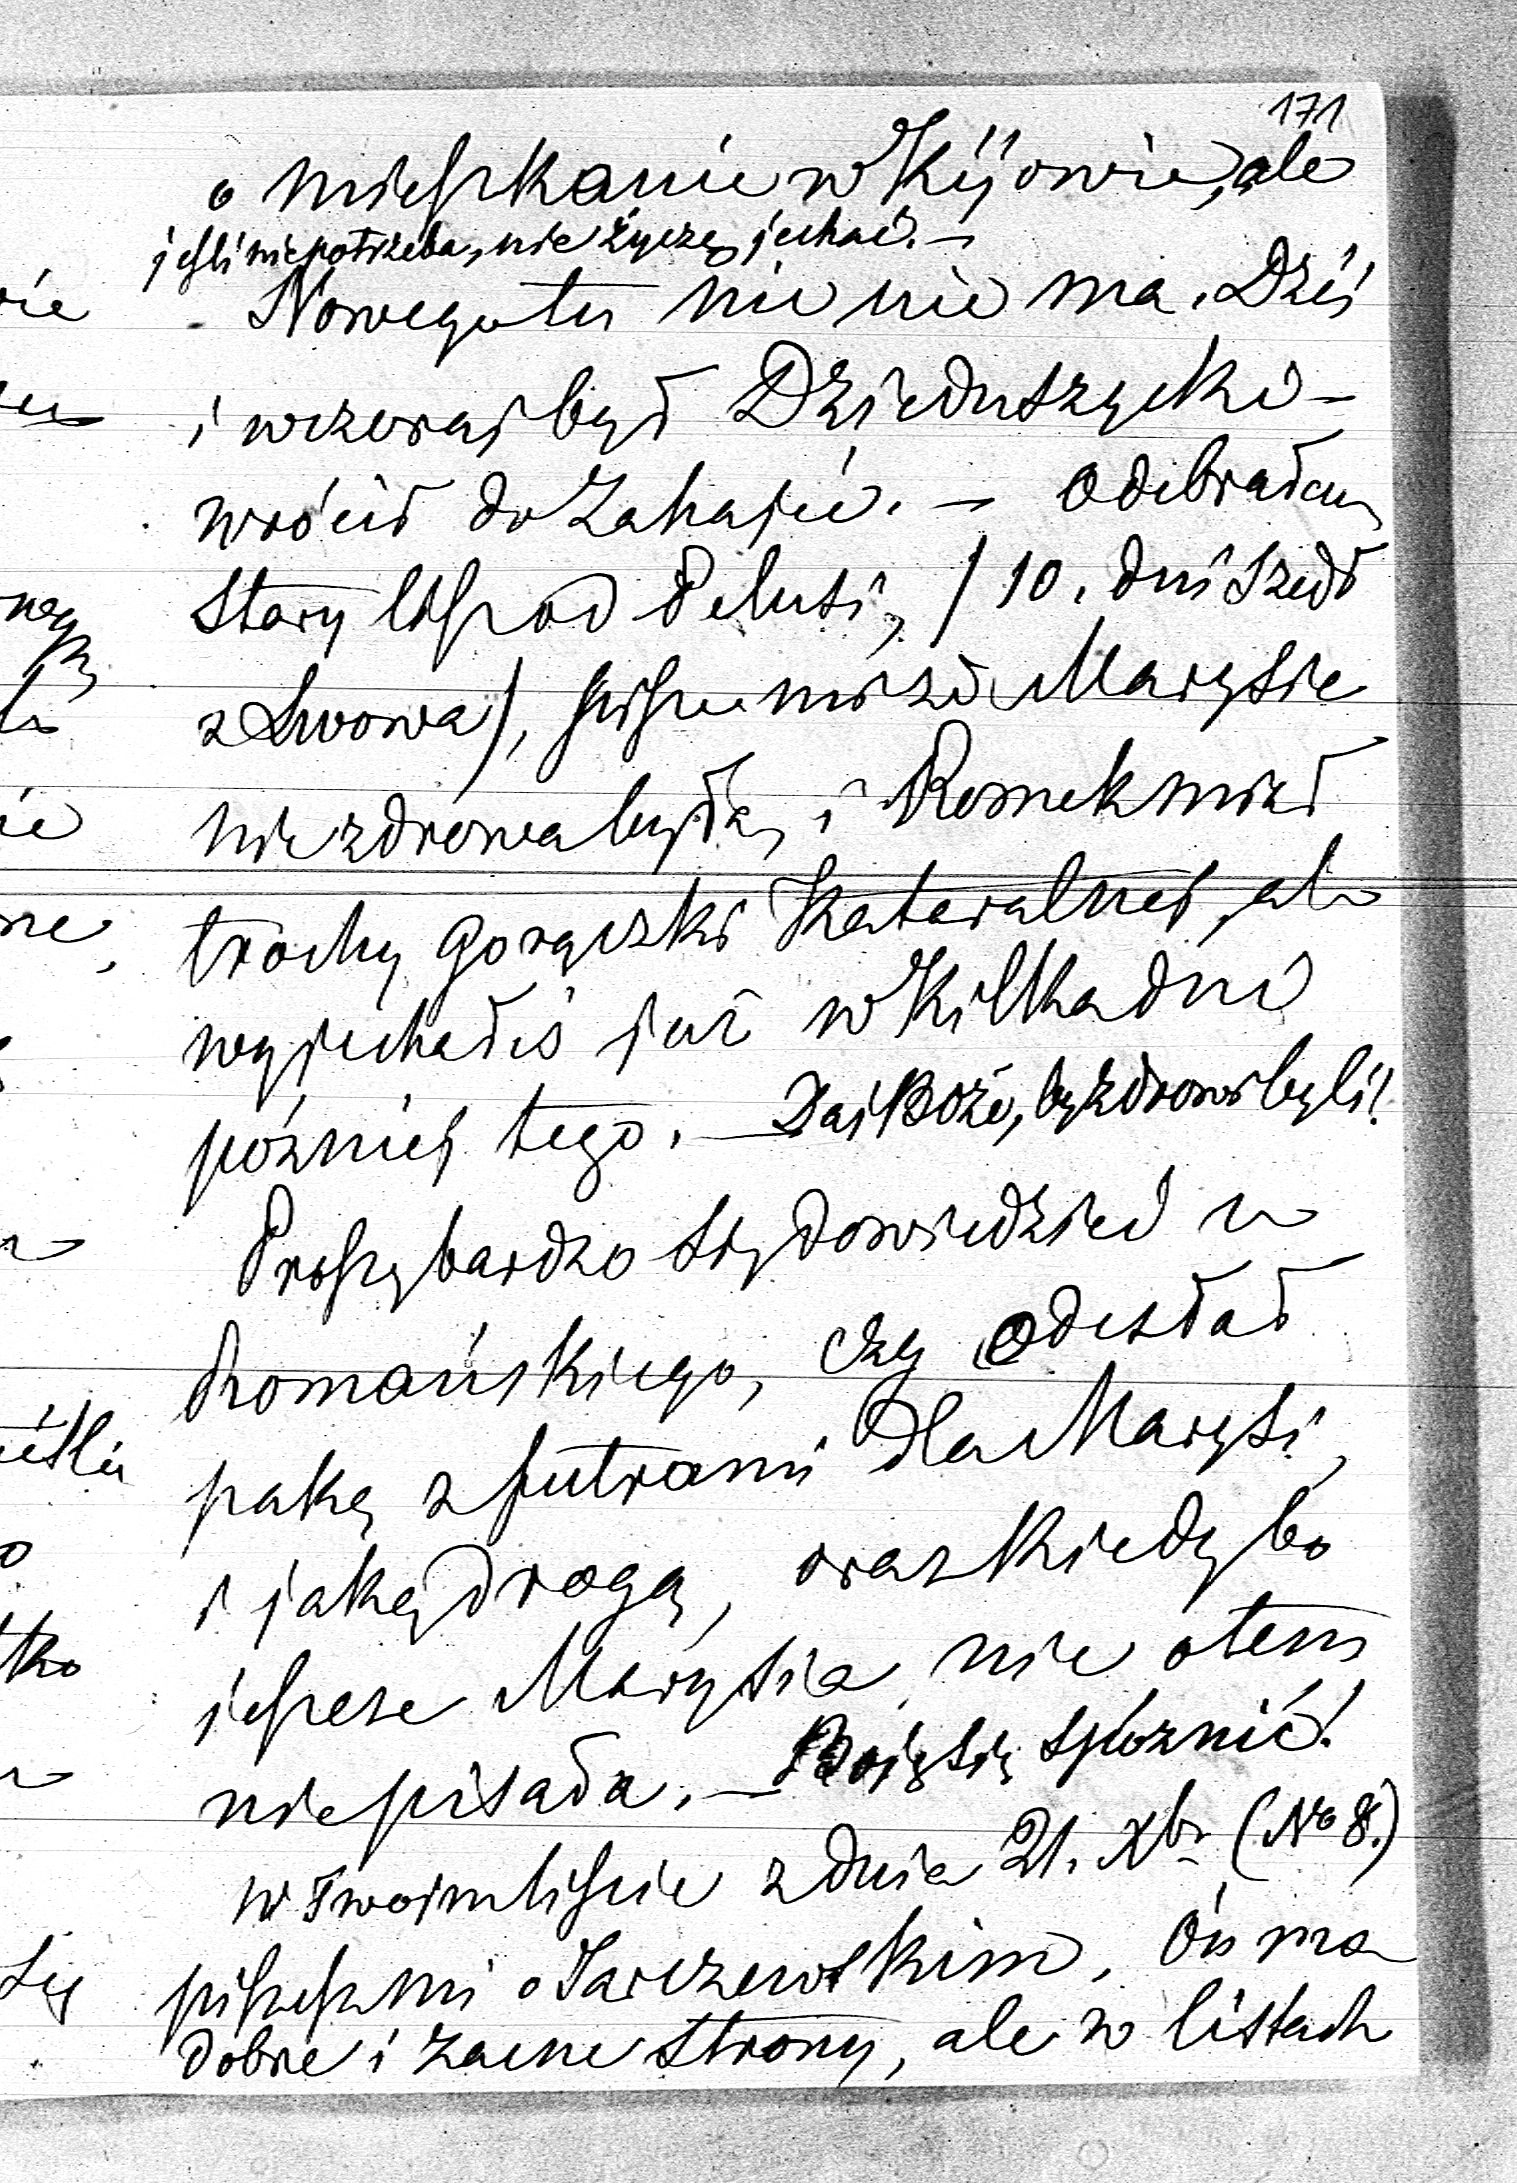 171
o mieszkanie w Kijowie, ale
jeśli nie potrzeba, nie życzę jechać. –
Nowego tu nic nie ma. Dziś
i wczoraj był Dzieduszycki –
wrócił do Zahajec. – Odebrałam
stary list od Pelusi, /10. dni szedł
z Lwowa/, pisze mi że Marysie
niezdrowa była, i Romek miał
trochę gorączki Kataralnej, ale
wyjechali już w kilka dni
później tego. – Daj Boże, by zdrowi byli!
Proszę bardzo się dowiedzieć u
Romańskiego, czy odesłał
pakę z futrami dla Marysi,
i jaką drogą, oraz kiedy bo
jeszcze Marysia nic o tem
nie pisała. – Boję się spóźnić!
W Twoim liście z dnia 21. Xbr (No 8.)
piszesz mi o Jarczewskim. On ma
dobre i zacne strony, ale w listach